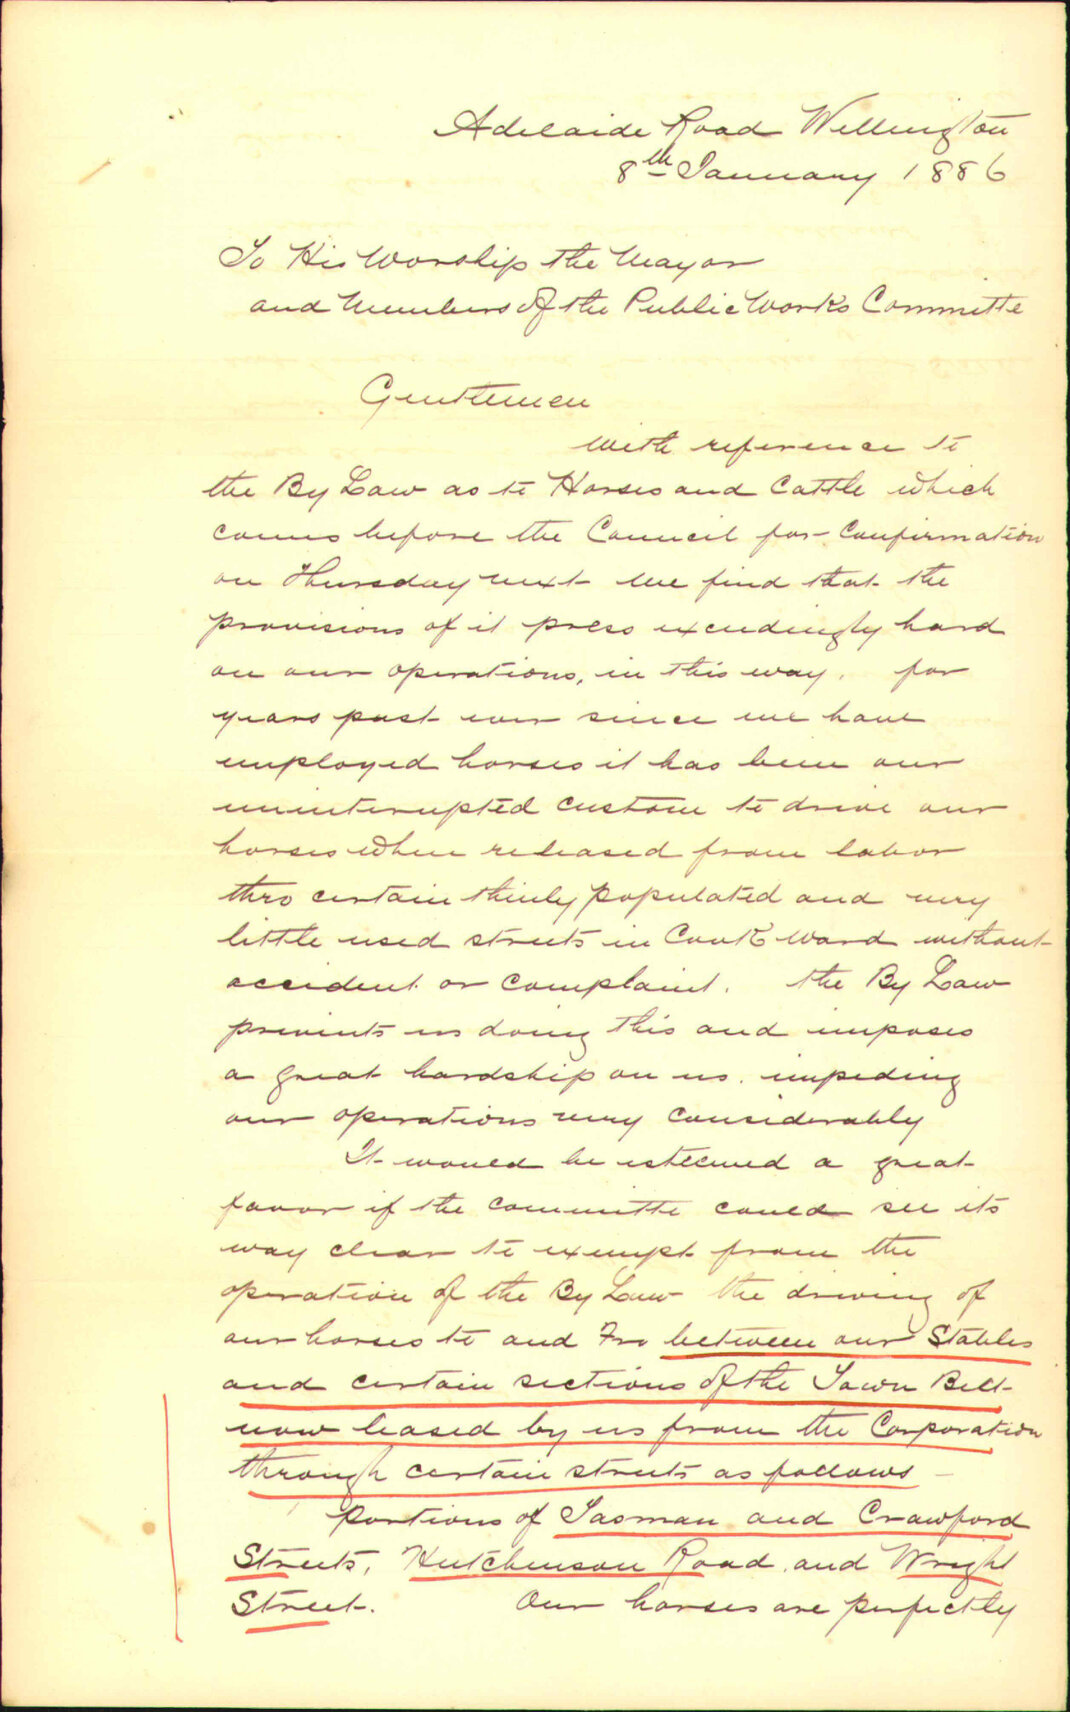 Adelaide Road Wellington
8th January 1886
To His Worship the Mayor
and Members of the Public Works Committe
Gentlemen
With reference to
the By Law as to Horses and Cattle which
comes before the Council for Confirmation
on Thursday next we find that the
provisions of it press exceedingly hard
on our operations, in this way. for
years past ever since we have
employed horses it has been our
uninterupted custom to drive our
horses when released from labor
thro certain thinly populated and very
little used streets in Cook Ward without
accident or complaint. the By Law
prevents us doing this and imposes
a great hardship on us. impeding
our operations very considerably
It would be esteemed a great
favor if the committe could see its
way clear to exempt from the
operation of the By Law the driving of
our horses to and Fro between our Stables
and certain sections of the Town Belt
now leased by us from the Corporation
through certain streets as follows —
portions of Tasman and Crawford
Streets, Hutchinson Road, and Wright
Street. Our horses are perfectly